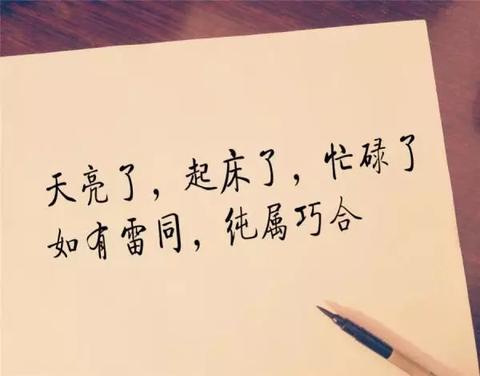 天亮了，起床了，忙碌了
如有雷同，纯属巧合